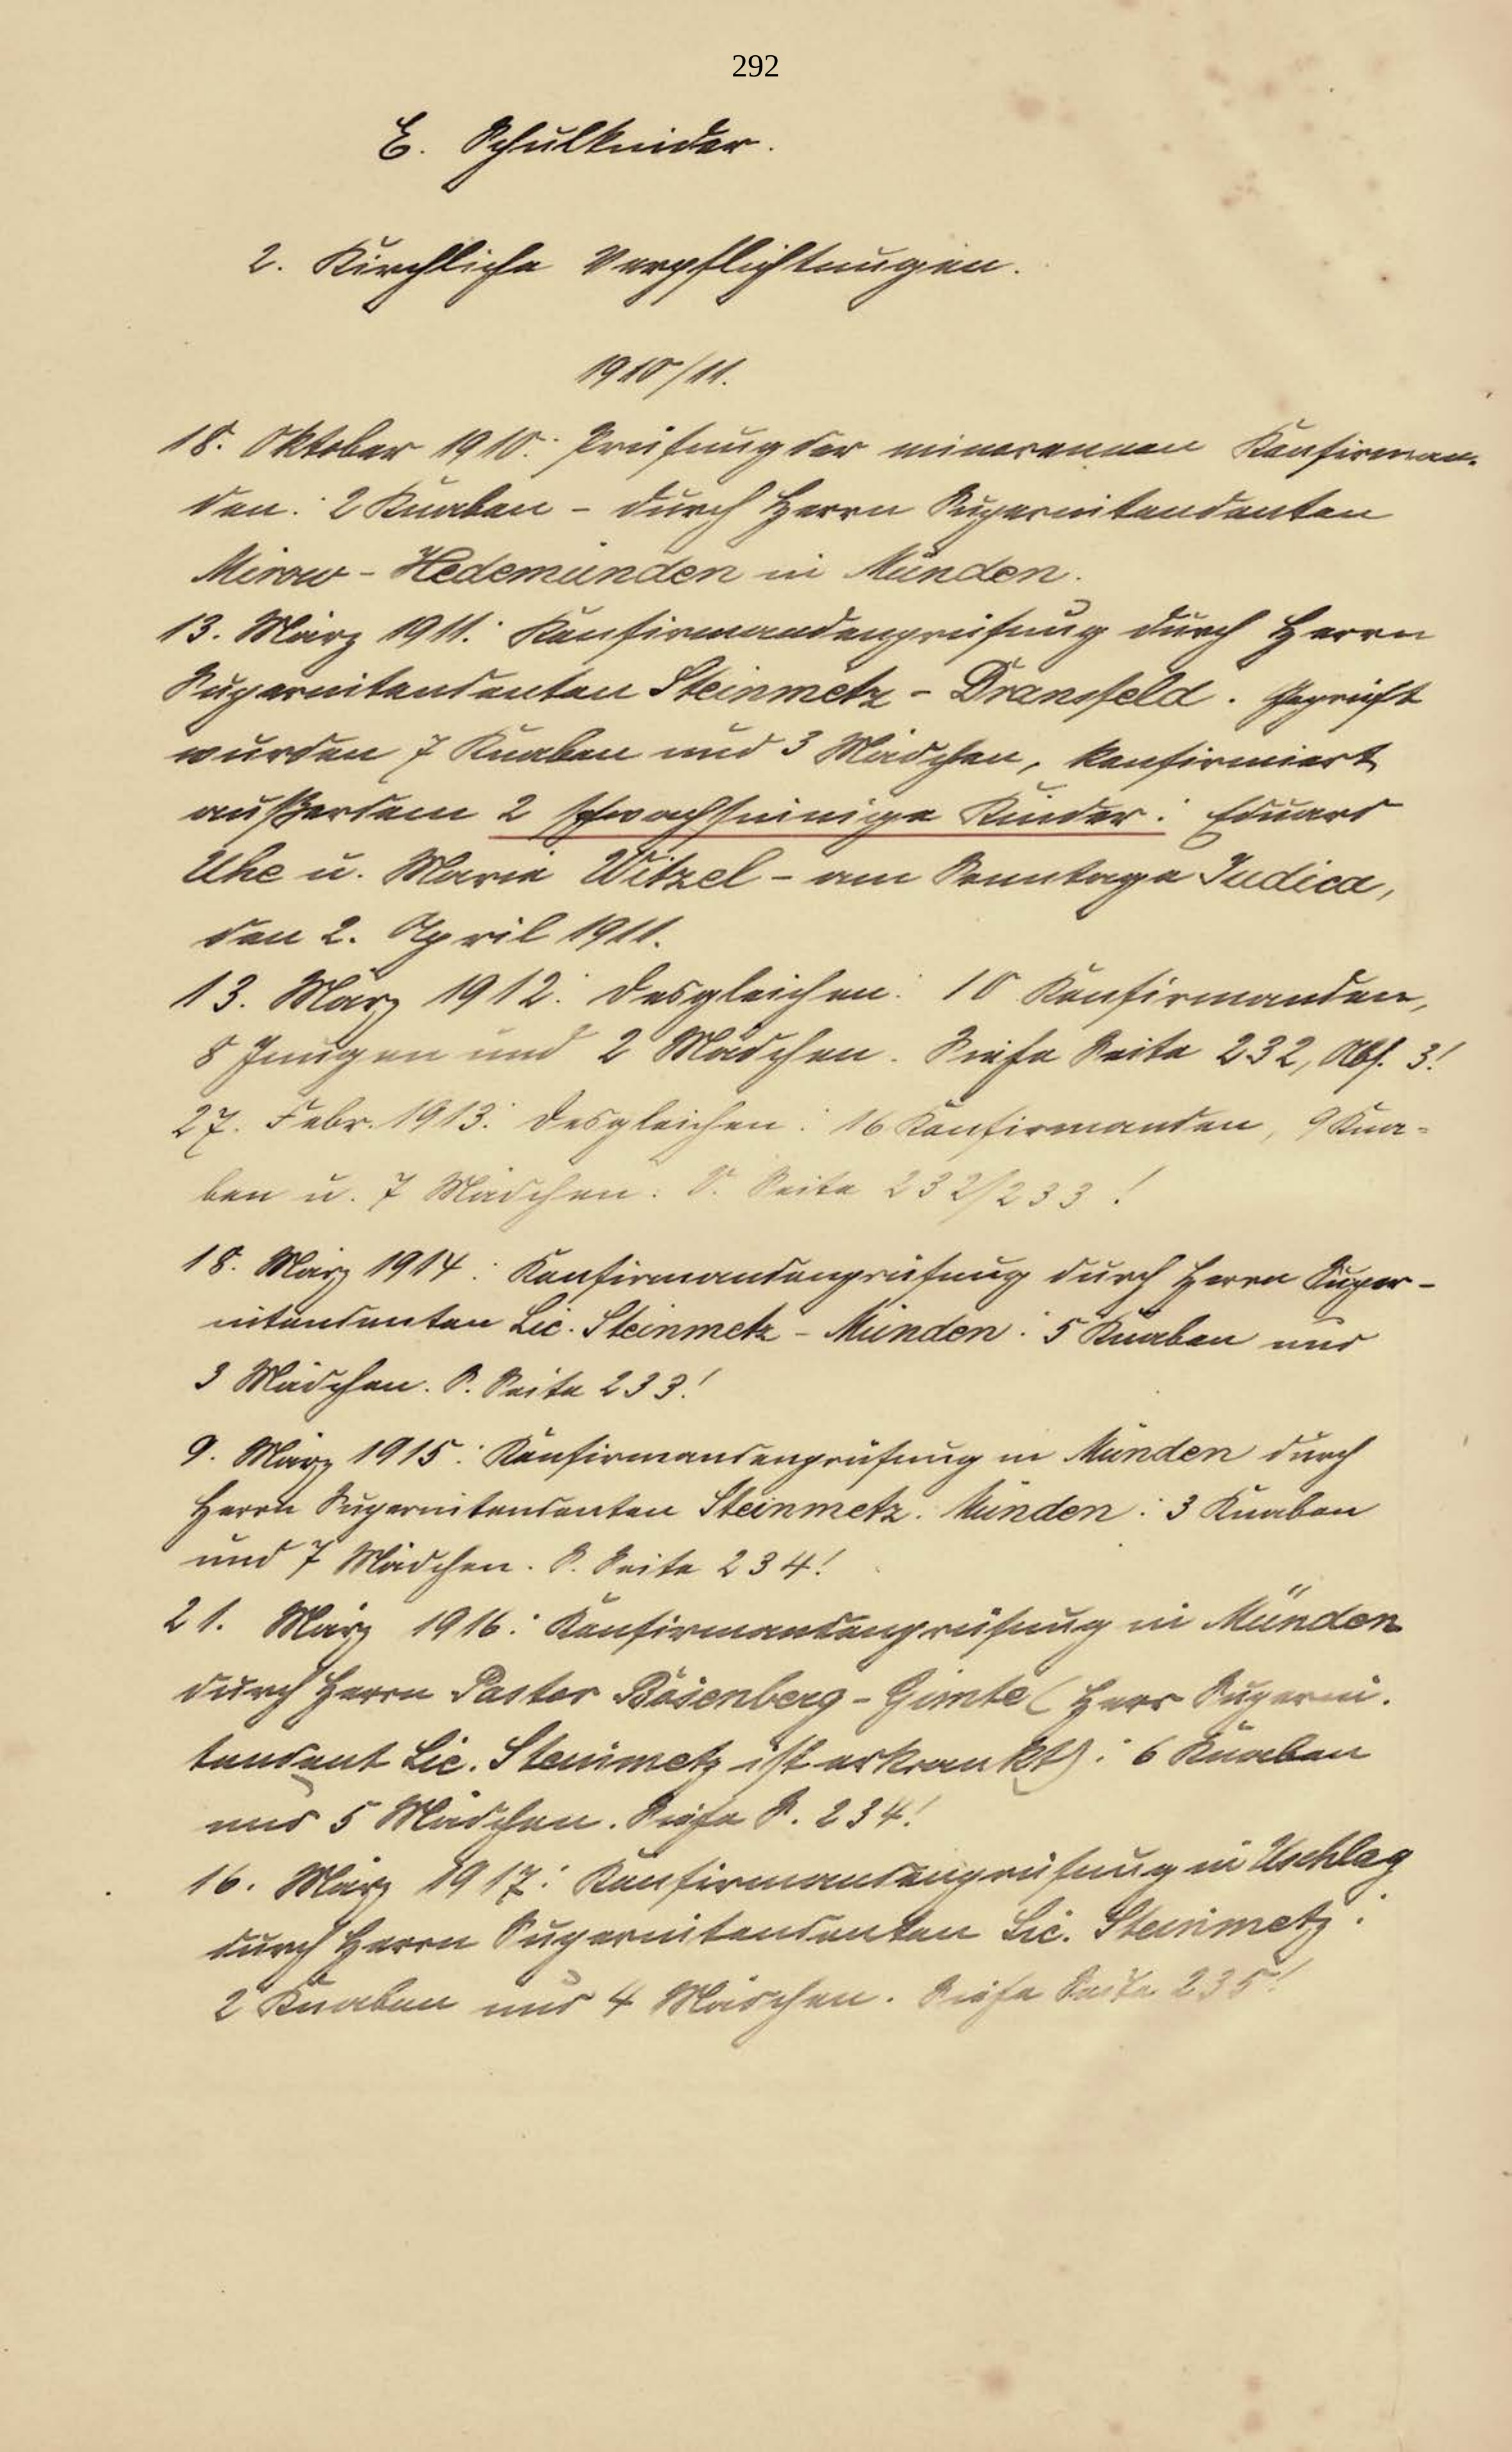 292
E. Schulkinder.
2. Kirchliche Verpflichtungen.
1910/11.
18. Oktober 1910: Prüfung der minorennen Konfirman-
den: 2 Knaben - durch Herrn Superintendenten
Mirow - Hedemünden in Münden.
13. März 1911: Konfirmandenprüfung durch Herrn
Superintendenten Steinmetz - Dransfeld. Geprüft
wurden 7 Knaben und 3 Mädchen, konfirmiert
außerdem 2 schwachsinnige Kinder: Eduard
Uhe u. Marie Witzel - am Sonntage Judica,
den 2. April 1911.
13. März 1912: Desgleichen: 10 Konfirmanden,
8 Jungen und 2 Mädchen. Siehe Seite 232, Abs. 3!
27. Febr. 1913: Desgleichen: 16 Konfirmanden, 9 Kna-
ben u. 7 Mädchen. S. Seite 232/233!
18. März 1914: Konfirmandenprüfung durch Herrn Super-
intendenten Lic. Steinmetz - Münden: 5 Knaben und
3 Mädchen. S. Seite 233!
9. März 1915: Konfirmandenprüfung in Münden durch
Herrn Superintendenten Steinmetz. Münden: 3 Knaben
und 7 Mädchen. S. Seite 234!
21. März 1916: Konfirmandenprüfung in Münden
durch Herrn Pastor Bösenberg - Gimte (Herr Superin-
tendent Lic. Steinmetz ist erkrankt): 6 Knaben
und 5 Mädchen. Siehe S. 234!
16. März 1917: Konfirmandenprüfung in Uschlag
durch Herrn Superintendenten Lic. Steinmetz:
2 Knaben und 4 Mädchen. Siehe Seite 235!